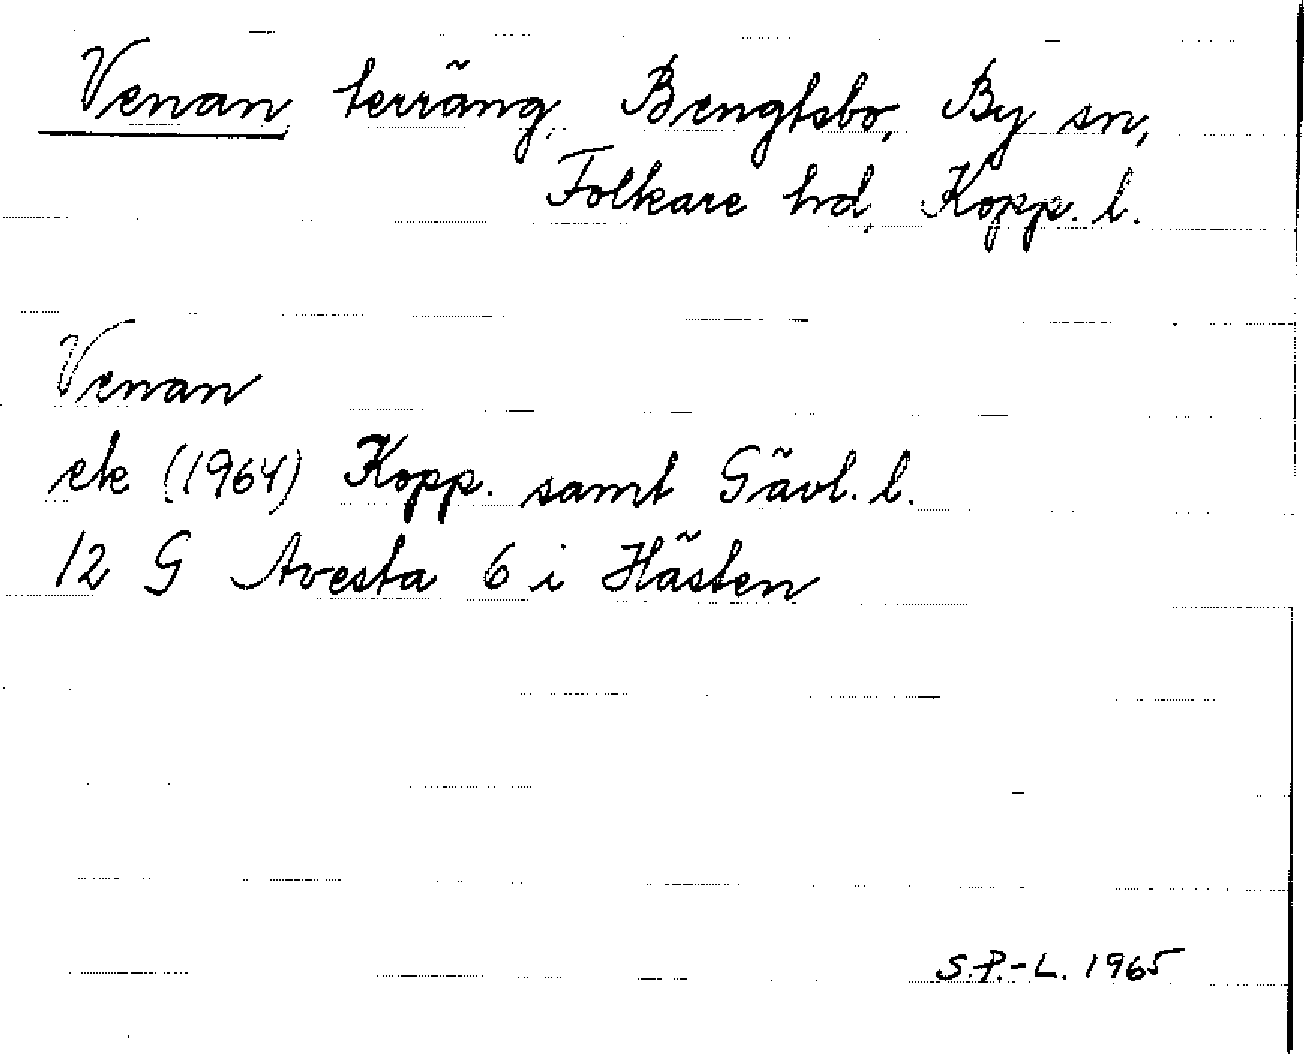 Venan, terräng, Bengtsbo, By sn,
Folkare hd, Kopp. l.
Venan
ek (1964) Kopp. samt Gävl. l.
12 G Avesta 6 i Hästen
S.P.-L. 1965